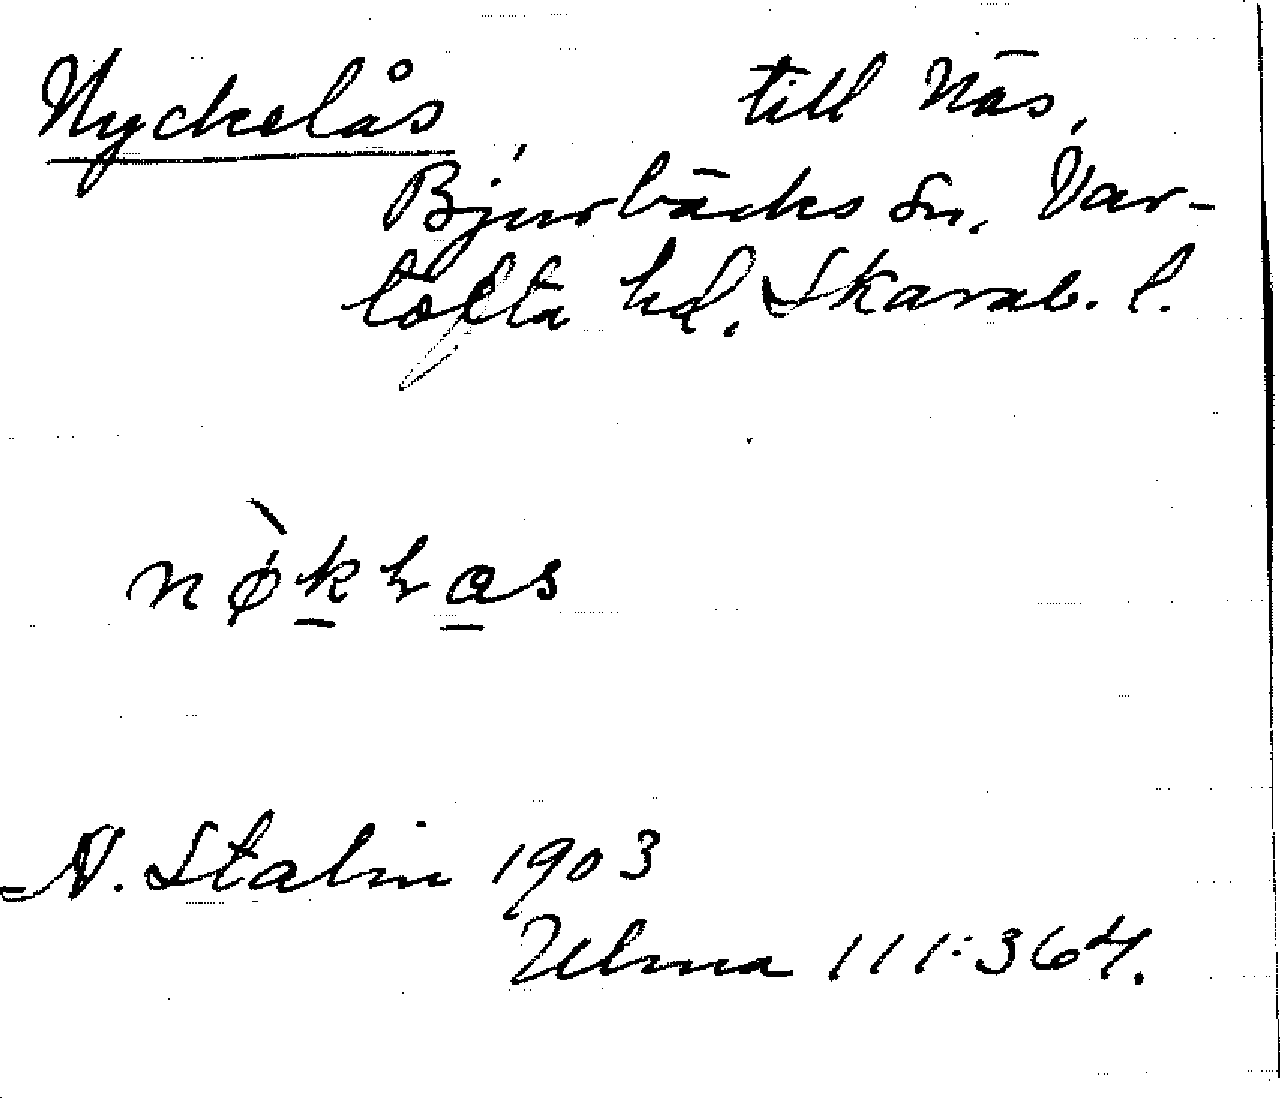 Nyckelås, till Näs,
Bjurbäcks sn, Var-
tofta hd, Skarab. l.
nø̀kkas
N. Stalin 1903
Ulma 111:364.